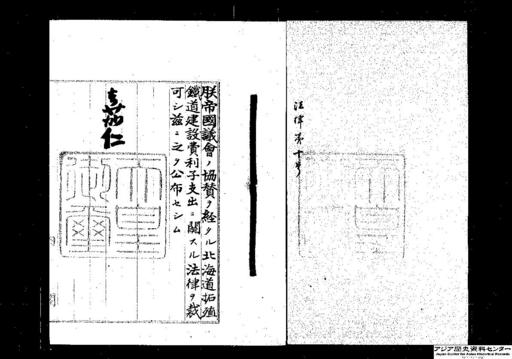 法律第十号
朕帝國議會ノ協賛ヲ経タル北海道拓殖
鐵道建設費利子支出ニ關スル法律ヲ裁
可シ茲ニ之ヲ公布セシム
嘉仁
アジア歴史資料センター
Japan Center for Asian Historical Records